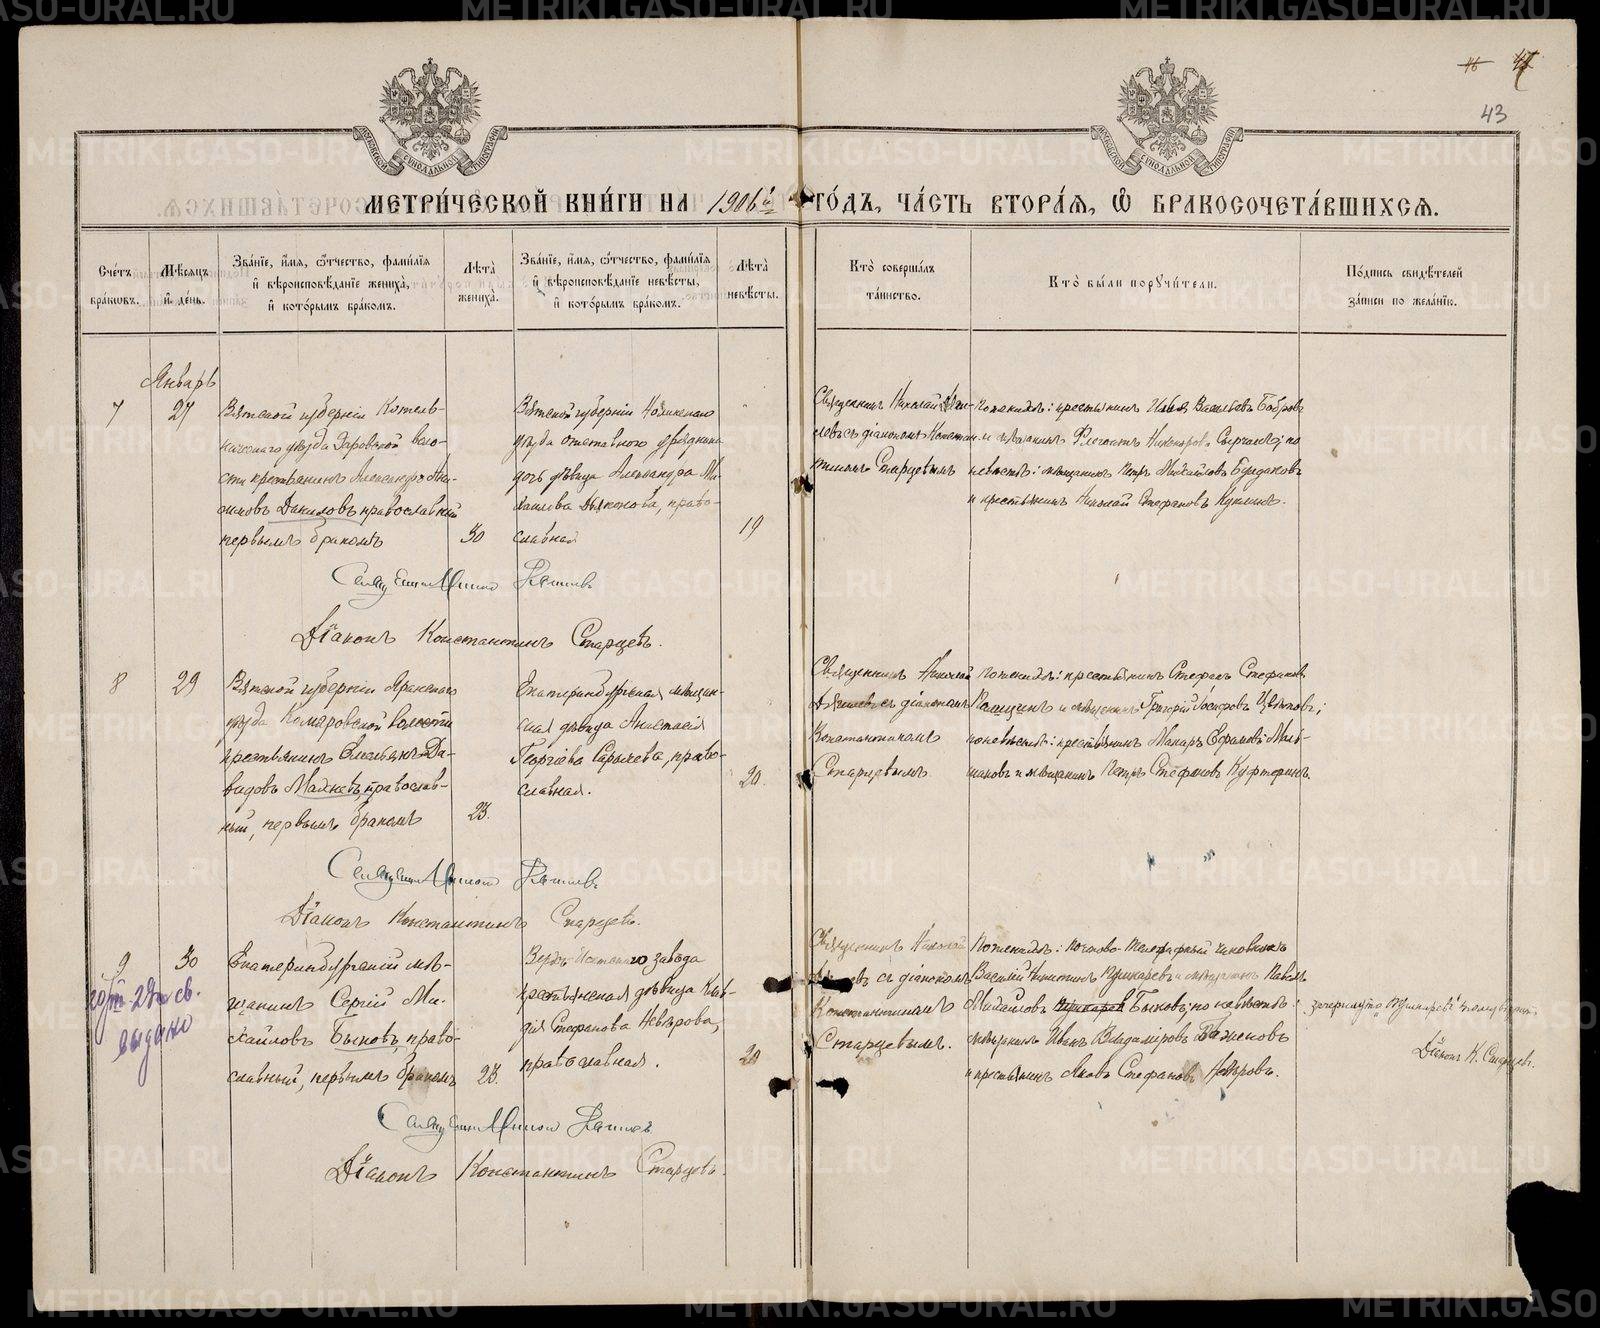 43
МЕТРИ́ЧЕСКОЙ КНИ́ГИ НА 1906й ГО́ДЪ, ЧА́СТЬ ВТОРА́Я, Ѽ БРАКОСОЧЕТА́ВШИХСЯ.
Сче́тъ бра́ковъ.
Мѣ́сяцъ и҆ де́нь.
Зва́нїе, и҆́мя, ѻ҆́тчество, фами́лїя
и҆ вѣроисповѣ́данїе жениха̀,
и҆ кото́рымъ бра́комъ.
Лѣ́та жениха̀.
Зва́нїе, и҆́мя, ѻ҆́тчество, фами́лїя
и҆ вѣроисповѣ́данїе невѣ́сты,
и҆ кото́рымъ бра́комъ.
Лѣ́та невѣ́сты.
Кто̀ соверша́лъ
та́инство.
Кто̀ бы́ли порꙋчи́тели.
По́дпись свидѣ́телей
за́писи по жела́нїю.
Январь
7
27
Вятской губерніи Котель-
ничскаго уѣзда
сти крестьянинъ Александръ
Даниловъ православный
первымъ бракомъ
30
Вятской губерніи Нолинскаго
уѣзда отставного урядника
дочь дѣвица Александра Ми-
хаилова Дьяконова, право-
славная
19
Священникъ Николай
съ діакономъ Констан-
тиномъ Старцевымъ
По женихѣ: крестьянинъ Илья Васильевъ Бобровъ
и мѣщанинъ Никаноровъ; по
невѣстѣ: мѣщанинъ Петръ Михайловъ Бурдаковъ
и крестьянинъ Николай Стефановъ Куклинъ.
Діаконъ Константинъ Старцевъ.
8
29
Вятской губерніи Яранскаго
уѣзда Комаровской волости
крестьянинъ Да-
видовъ православ-
ный, первымъ бракомъ
23.
Екатеринбургская мѣщан-
ская дѣвица Анастасія
Георгіева право-
славная.
20.
Священникъ Николай
съ діакономъ
Константиномъ
Старцевымъ
По женихѣ: крестьянинъ Стефанъ Стефановъ
и мѣщанинъ Григорій Іосифовъ Цвѣтковъ;
по невѣстѣ: крестьянинъ Макаръ Ефимовъ
и мѣщанинъ Петръ Стефановъ Куфтеринъ
Діаконъ Константинъ Старцевъ.
9
30
выдано
Екатеринбургскій мѣ-
щанинъ Сергій Ми-
хайловъ Быковъ, право-
славный, первымъ бракомъ
23.
Верхъ-Исетскаго завода
крестьянская дѣвица Клав-
дія Стефанова Невѣрова,
православная.
20
Священникъ Николай
съ діакономъ
Константиномъ
Старцевымъ.
По женихѣ: почтово-телеграфный чиновникъ
Василій Никитинъ Пушкаревъ и мѣщанинъ Павелъ
Михайловъ Пушкаревъ Быковъ; по невѣстѣ:
мѣщанинъ Иванъ Владиміровъ Баженовъ
и крестьянинъ Яковъ Стефановъ Невѣровъ.
зачеркнуто „Пушкаревъ“
Діаконъ К. Старцевъ.
Діаконъ Константинъ Старцевъ.
METRIKI.GASO-URAL.RU